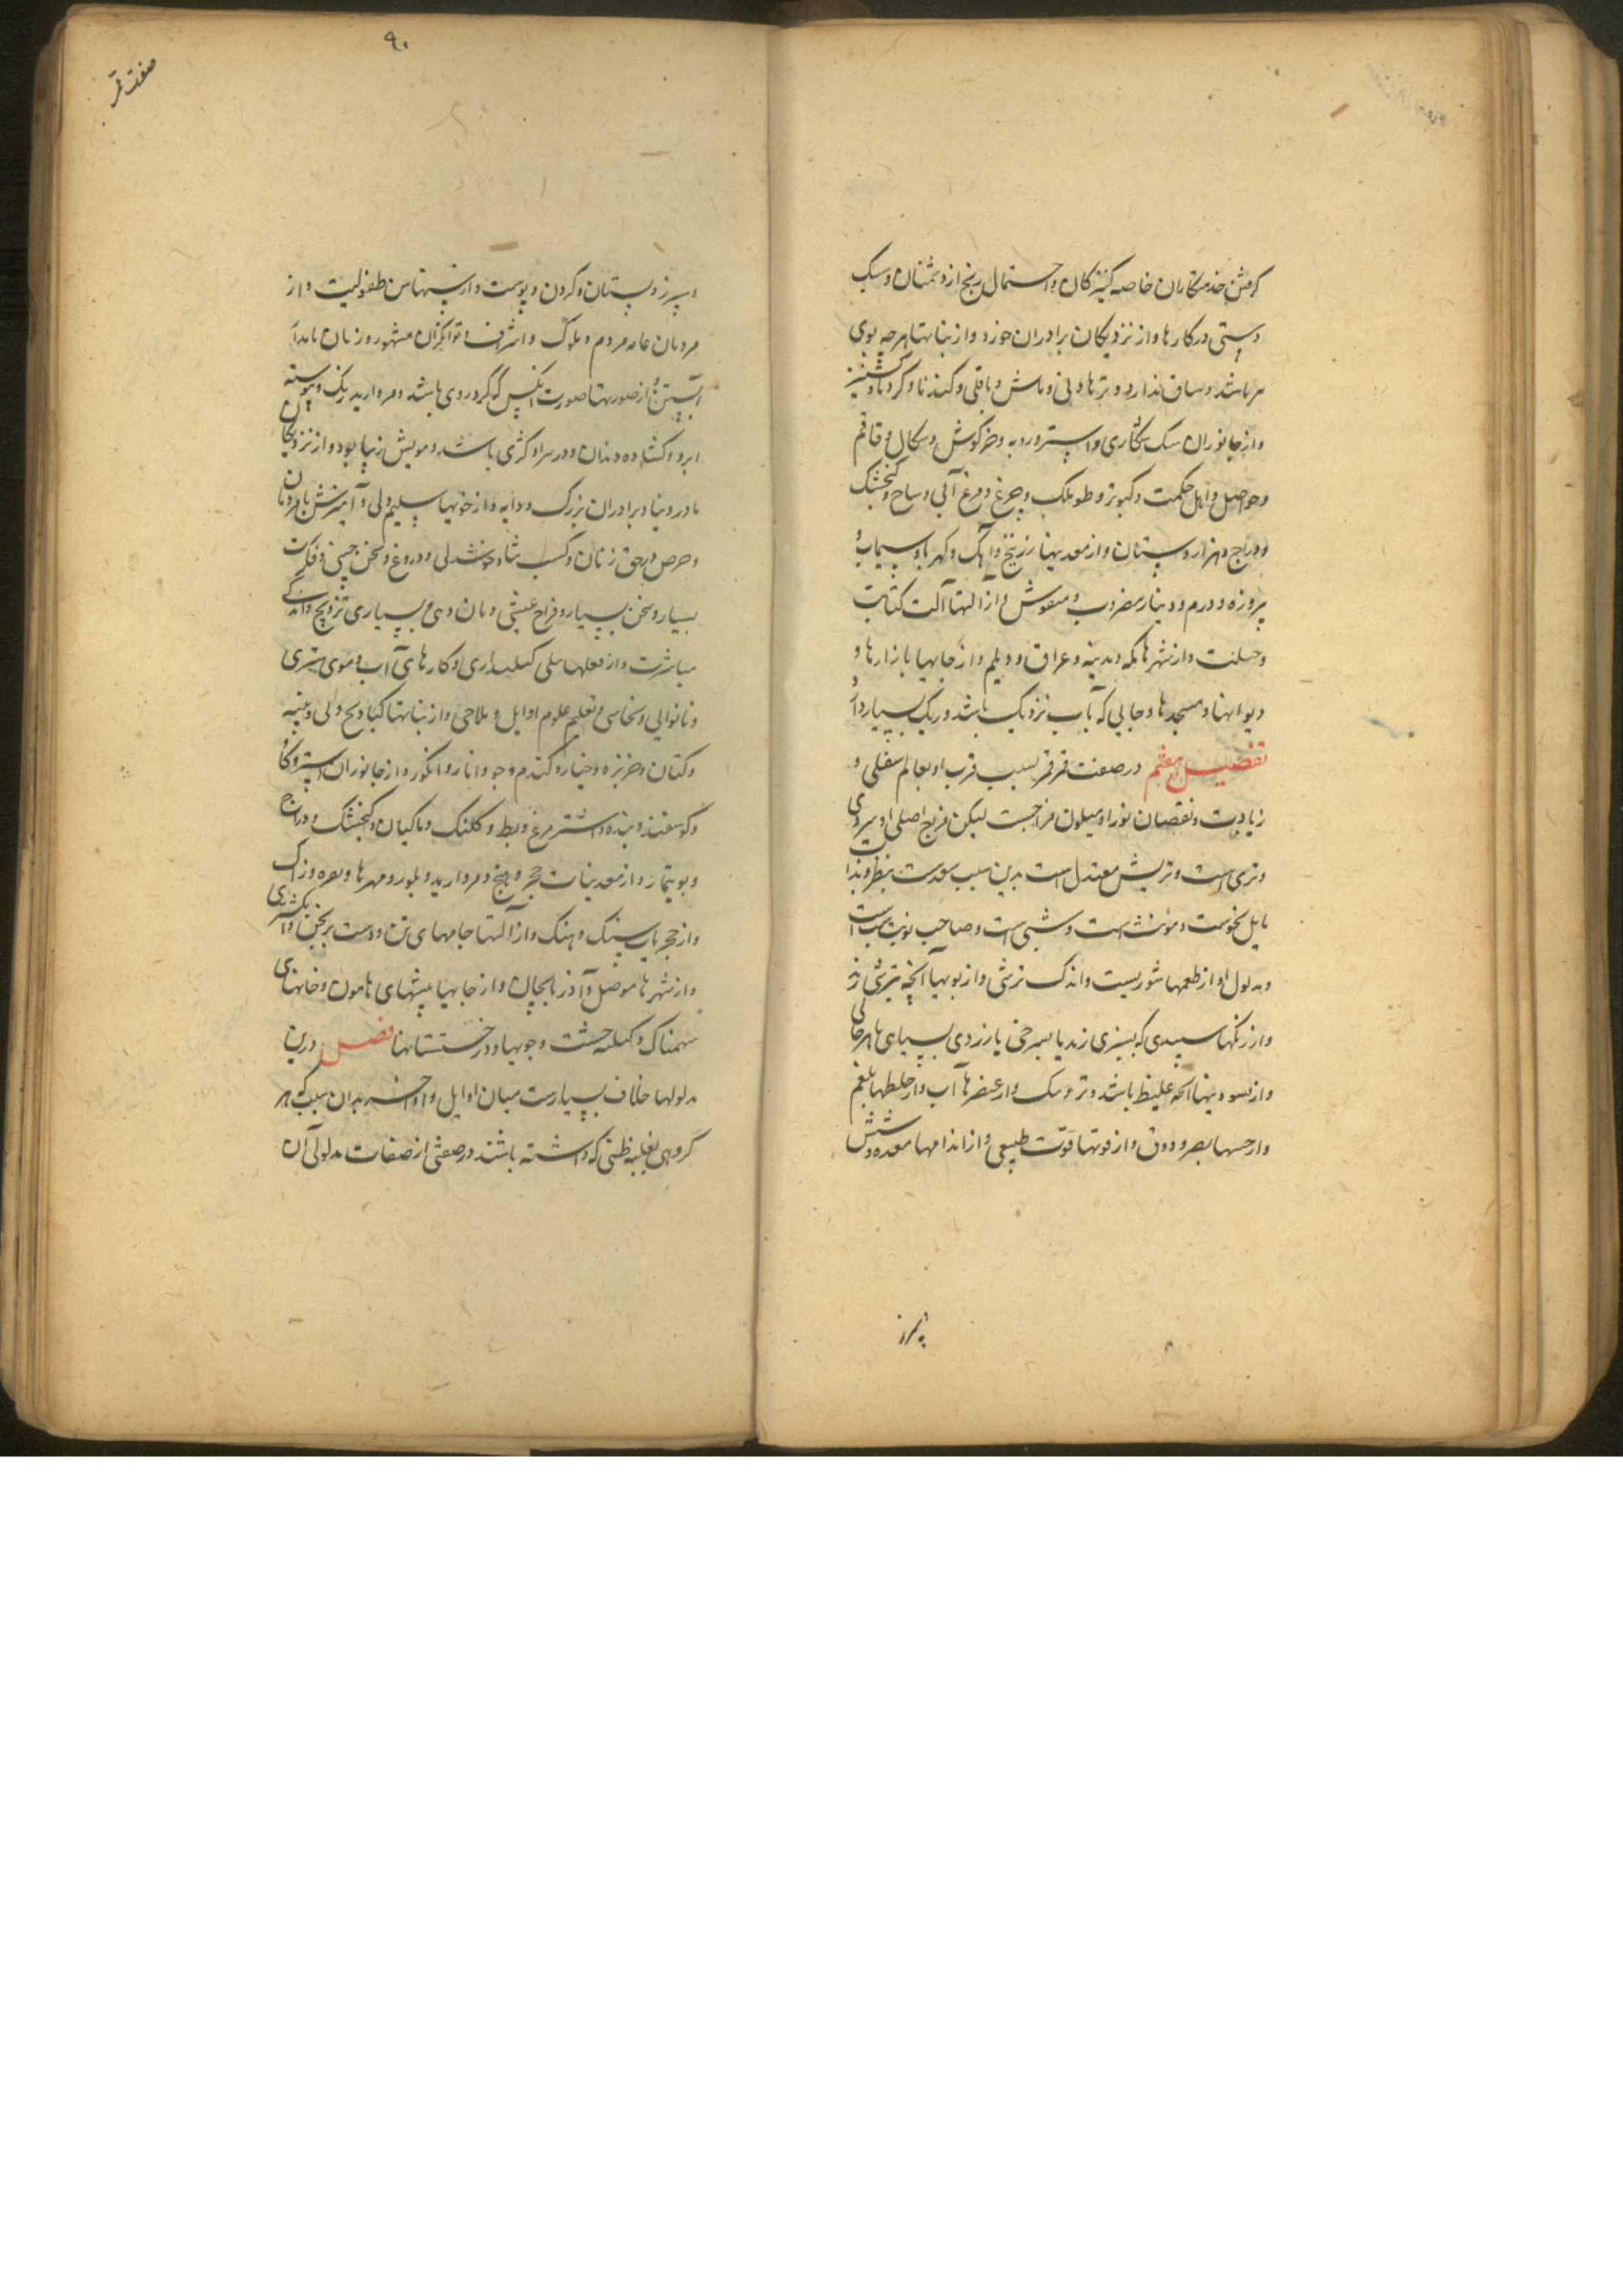 گرفتن خدمتکاران خاصه کنیزکان و احتمال رنج از دشمنان و سبک
دستی در کارها و از نزدیکان برادران خورد و از نباتها هرچه بوی
مر باشد و ساق ندارد و ترها و نی و ماش و باقلی و کندنا و کرویا و گشنیز
و از جانوران سک شکاری و استر و روبه و خرگوش و شکال و قاقم
و حواصل و اهل حکمت و کبوتر و طوطک و چرغ و مرغ آبی و ساج و گنجشک
و دراج و هزاردستان و از معدنیها زرنیخ و آهک و کهربا و سیماب و
پیروزه و درم و دینار مضروب و منقوش و از آلتها آلت کتابت
و از شهرها مکه و مدینه و عراق و دیلم و از جایها بازارها و
دیوانها و مسجدها و جایی که بآب نزدیک باشد و ریک بسیار دارد
تفصیل هفتم در صفت قمر قمر بسبب قرب او بعالم سفلی و
زیادت و نقصان نور او میلون مزاجست لیکن مزاج اصلی او سردی
و تری است و تریش معتدل است بدین سبب سعدست بنظر و بذات
مایل بنحوست و مؤنث است و شبی است و صاحب نوبت شب است
و مدلول او از طعمها شوریست و اندک ترشی و از بویها آنچه بتیزی زند
و از رنگها سپیدی که بسبزی زند یا بسرخی یا زردی بسیاهی ناهرجای
و از بسودنیها آنچه غلیظ باشد و تر و سبک و از عنصرها آب و از خلطها بلغم
و از حسها بصر و ذوق و از قوتها قوت طبیعی و از اندامها معده و شش
و سپرز
۹۰
صفت قمر
و سپرز و پستان و گردن و پوست و از سنها سن طفولیت و از
مردمان عامه مردم و ملوک و اشراف و توانگران مشهور و زنان نامدار
آبستن و از صورتها صورت آنکس که گرد روی باشد و مروارید رنگ و پیوسته
ابرو و گشاده دندان و در سر او کژی باشد و مویش زیبا بود و از نزدیکان
مادر و نیا و برادران بزرگ و دایه و از خویها سلیم دلی و آمیزش با مردمان
و حرص در حق زنان و کسب شادی و خوشدلی و دروغ و سخن چینی و فکرت
بسیار و سخن بسیار و فراخ عیشی و نان دهی و بسیاری تزویج و اندکی
مباشرت و از فعلها ملی کلیداری و کارهای آب و موی ستری
و نانوایی و نخاسی و تعلیم علوم اوایل و ملاحی و از نباتها گیا و نخ و نی و پنبه
و کتان و خربزه و خیار و گندم و جو و انار و انگور و از جانوران استر و گاو
و گوسفند و بنده و اشتر مرغ و بط و کلنک و ماکیان و گنجشک و دراج
و بوتیمار و از معدنیات حجر و بیخ و مروارید و بلور و مهرها و نقره و زاک
و از حجریات سنگ و آهک و از آلتها جامهای تن و دست برنجن و انگشتری
و از شهرها موصل و آذربایجان و از جایها بیشهای هامون و خانهای
نمناک و کلبه خشت و جویها و درختستانها فصل درین
مدلولها خلاف بسیارست میان اوایل و اواخر بدان سبب که هر
گروهی بغلبه ظنی که داشته باشند در صفتی از صفات مدلولی آن